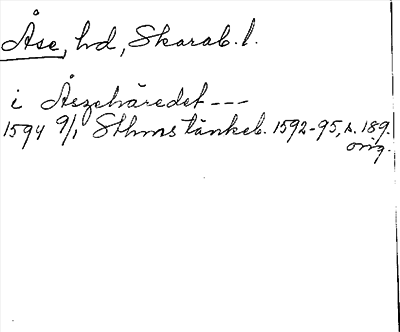 Åse, hd, Skarab. l.
i Åszehäredet ---
1594 9/1 Sthms tänkeb. 1592-95, s. 189.
orig.